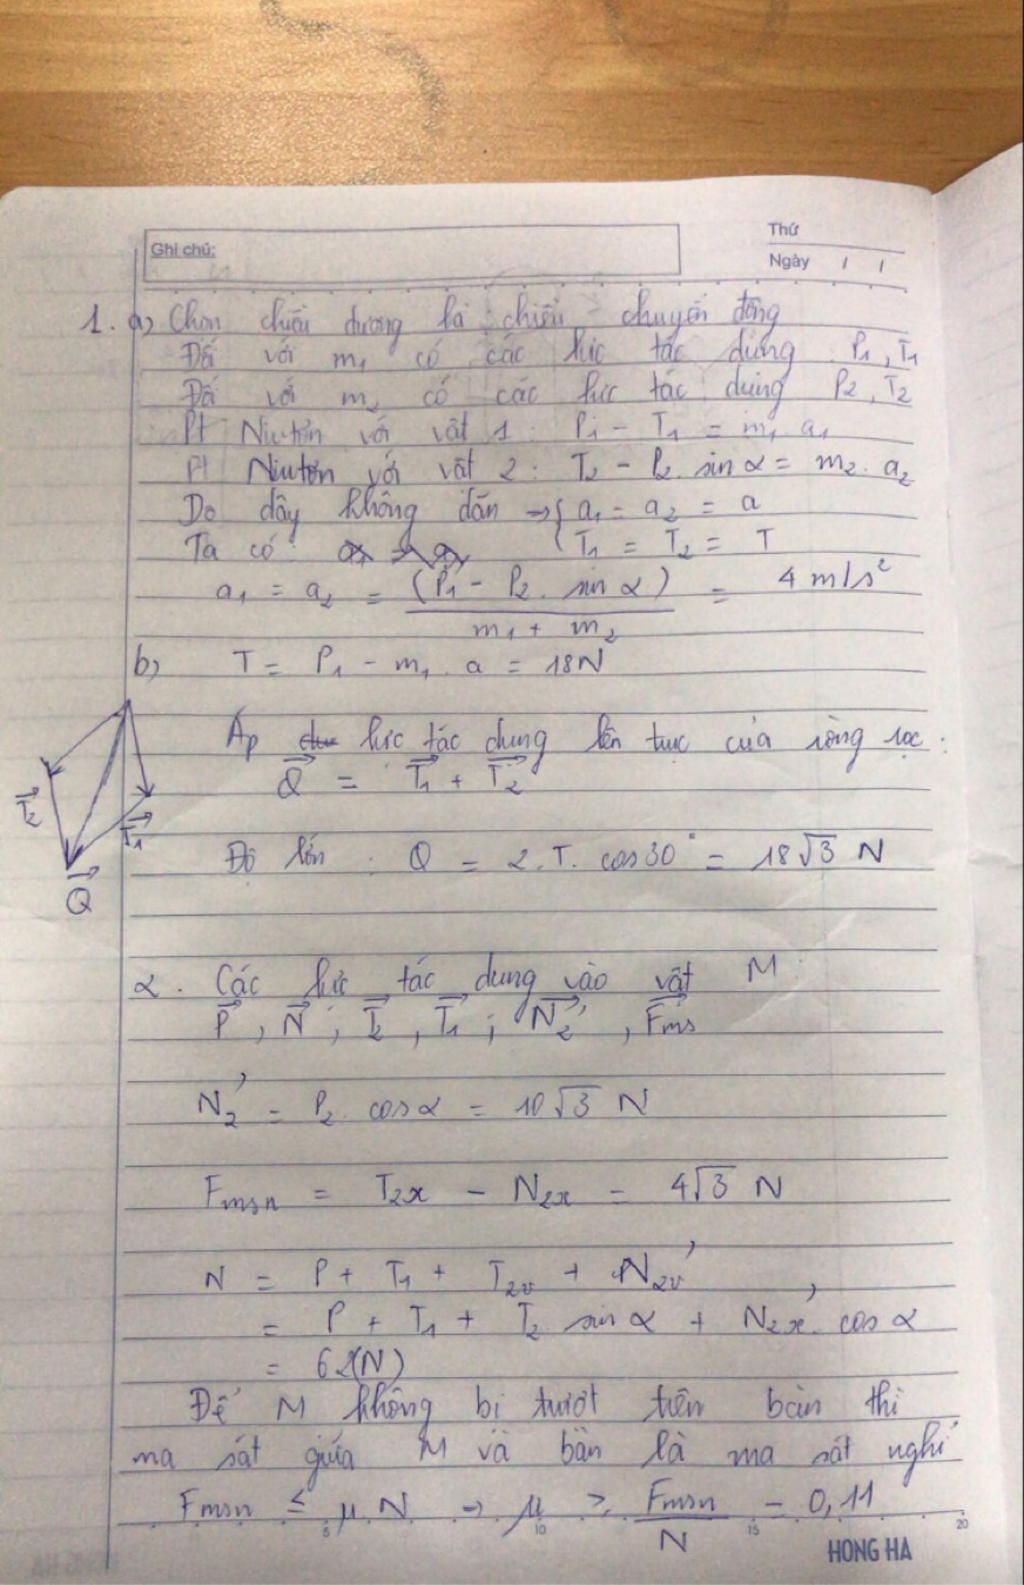 Ghi chú:
Thứ
Ngày / /
1. a) Chọn chiều dương là chiều chuyển động
Đối với m₁ có các lực tác dụng P₁, T₁
Đối với m₂ có các lực tác dụng P₂, T₂
Pt Niutơn với vật 1: P₁ - T₁ = m₁.a₁
Pt Niutơn với vật 2: T₂ - P₂.sin α = m₂.a₂
Do dây không dãn → { a₁ = a₂ = a
Ta có: T₁ = T₂ = T
a₁ = a₂ = (P₁ - P₂.sin α) / (m₁ + m₂) = 4 m/s²
b) T = P₁ - m₁.a = 18N
Áp lực tác dụng lên trục của ròng rọc:
Q⃗ = T⃗₁ + T⃗₂
T⃗₂
T⃗₁
Q⃗
Độ lớn: Q = 2.T.cos30° = 18√3 N
2. Các lực tác dụng vào vật M:
P⃗, N⃗, T⃗₂, T⃗₁, N⃗₂', F⃗ms
N₂' = P₂.cosα = 10√3 N
Fmsn = T₂x - N₂x = 4√3 N
N = P + T₁ + T₂v + N₂v'
= P + T₁ + T₂ sin α + N₂x'.cos α
= 62(N)
Để M không bị trượt trên bàn thì
ma sát giữa M và bàn là ma sát nghỉ
Fmsn ≤ μ.N → μ ≥ Fmsn / N = 0,11
5 10 15 20
HONG HA